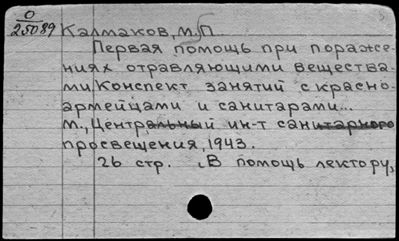 О
25089 Калмаков, М.П.
Первая помощь при пораже-
ниях отравляющими вещества-
ми. Конспект занятий с красно-
армейцами и санитарами...
М., Центральный ин-т санитарного
просвещения, 1943.
26 стр. (В помощь лектору,